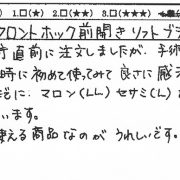 1.□(★) 2.□(★★) 3.□(★★★)
フロントホック前開きソフトブラ
直前に注文しましたが、手術
時に初めて使ってみて良さに感
に、マロン(LL)セサミ(L
います。
使える商品なのがうれしいです。